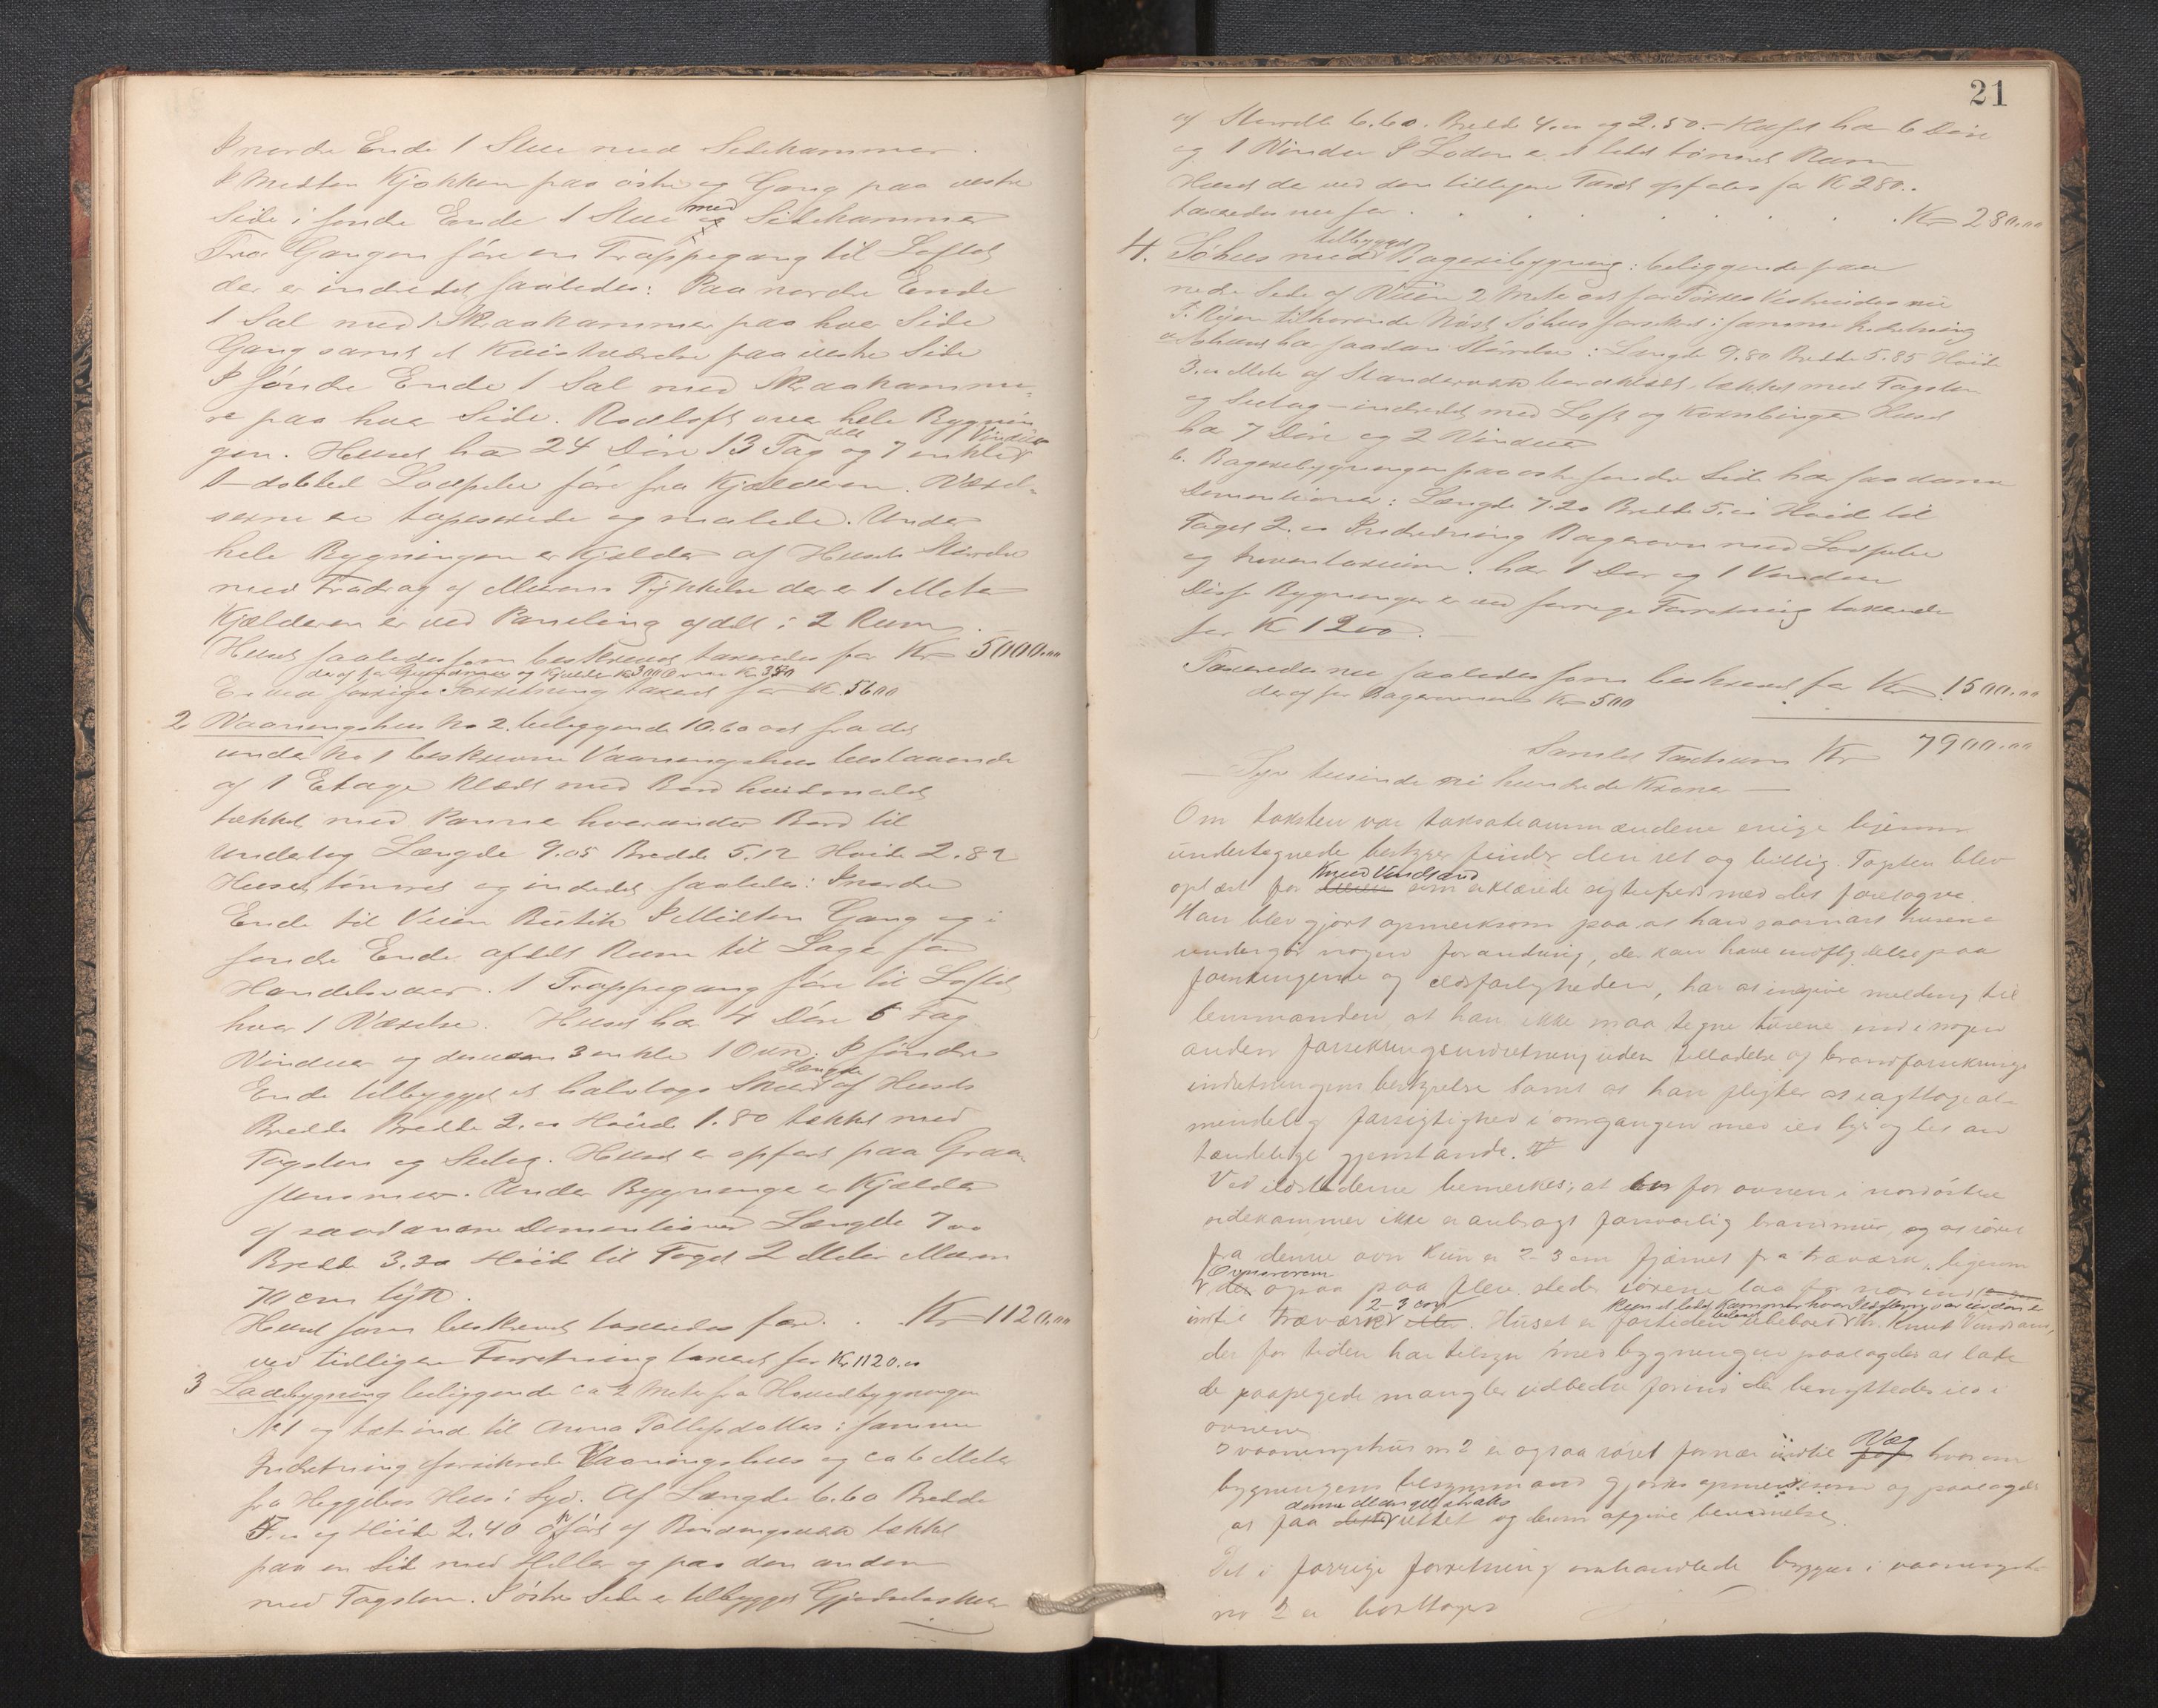 I nordre Ende 1 Stue med Sidekammer.
I Midten Kjøkken paa østre og Gang paa vestre
Side i søndre Ende 1 Stue med Sidekammer
Fra Gangen fører en Trappegang til Loftet
der er indredet saaledes: Paa nordre Ende
1 Sal med 1 Skraakammer paa hver Side
Gang samt et Kvistværelse paa vestre Side
I søndre Ende 1 Sal med Skraakamme-
re paa hver Side. Rodeloft over hele Bygnin
gen. Huset har 24 Døre 13 Fag delt og 7 enkle Vinduer
1 dobbel Lodpibe fører fra Kjælderen. Værel-
serne er tapeserede og malede. Under
hele Bygningen er Kjelder af Husets Størrelse
med Fradrag af Murens Tykkelse der er 1 Meter
Kjælderen er ved Paneling afdelt i 2 Rum.
Huset saaledes som beskrevet taxeredes for Kr 5000.00
deraf for Grundmur og Kjelder Kr 300 Ovne Kr 350
Er ved forrige Forretning taxeret for Kr. 5600
2 Vaaningshus No 2. beliggende 10.60 ost fra det
under No 1 beskrevne Vaaningshus bestaaende
af 1 Etage klædt med Bord hvidmalet
tækket med Panne hvorunder Bord til
Undertag Længde 9.05 Bredde 5.12 Høide 2.82
Huset tømret og indredet saaledes: I nordre
Ende til Veien Butik I Midten Gang og i
søndre Ende afdelt Rum til Lager for
Handelsvarer. 1 Trappegang fører til Loftet
hvor 1 Værelse. Huset har 4 Døre 5 Fag
Vinduer og desuden 3 enkle 1 Ovn. I søndre
Ende tilbygget et halvtags Skur Længde af Husets
Bredde Bredde 2.00 Høide 1.80 tækket med
Tagsten og Sutag. Huset er opført paa Graa-
stensmur. Under Bygningen er Kjælder
af saadanne Dimentioner Længde 7.00
Bredde 3.30 Høide til Taget 2 Meter Muren
70 cm tyk.
Huset som beskrevet taxeredes for . . Kr 1120.00
ved tidligere Forretning taxeret for Kr 1120.00
3 Ladebygning beliggende ca 2 Meter fra Hovedbygningen
No 1 og tæt ind til Anna Tollefsdatters i samme
Indretning forsikrede Vaaningshus og ca 6 Meter
fra Heggebøs Hus i Syd. Af Længde 6.60 Bredde
og Høide 2.40 opført af Bindingsværk tækket
paa en Side med Heller og paa den anden
med Tagsten. I østre Side er tilbygget Gjødselskur
21
af Størrelse 6.60. Bredde 4.00 og 2.50. Huset har 6 Døre
og 1 Vindu I Laden er et lidet tømret Rum
Huset der ved den tidligere Taxt opførtes for Kr 280..
taxeredes nu for . . . . . . . . Kr 280.00
4. Søhus med tilbygget Bageribygning: beliggende paa
nedre Side af Veien 2 Meter
tilhørende Nøst Søhus forsikret i samme Indretning
a Søhuset har saadan Størrelse: Længde 9.80 Bredde 5.85 Høide
3.00 Meter af Standerværk bordklædt, tækket med Tagsten
og Sutag – indredet med Loft og Kornbinger Huset
har 7 Døre og 2 Vinduer
b. Bageribygningen paa østre søndre Side har saadanne
Dimentioner: Længde 7.20 Bredde 5.00 Høide til
Taget 2.00 Indredning Bagerovn med Lodpibe
og Inventarium. har 1 Dør og 1 Vindue
Disse Bygninger er ved forrige Forretning taxerede
for Kr 1200.
Taxeredes nu saaledes som beskrevet for Kr 1500.00
deraf for Bagerovnen Kr 500
Samlet Taxtsum Kr 7900.00
— Syv tusinde ni hundrede Kroner —
Om taksten var taksationsmændene enige ligesom
undertegnede bestyrer finder den ret og billig. Taxten blev
oplæst for Knud Vindsand som erklærede sig tilfreds med det foretagne.
Han blev gjort opmerksom paa at han saasnart husene
undergår nogen forandring, der kan have indflydelse paa
forsikringerne og ildsfarligheden, har at indgive melding til
lensmanden at han ikke maa tegne husene ind i nogen
anden forsikringsindretning uden tilladelse af brandforsikrings
indretningens bestyrelse samt at han pligter at iagttage al-
mindelig forsigtighed i omgangen med ild lys og let an
tændelige gjenstande.
Ved ildstederne bemerkes, at for ovnen i nordøstre
sidekammer ikke er anbragt forsvarlig brandmur, og at røret
fra denne ovn kun er 2-3 cm fjernet fra træværk, ligesom
Ovnsrørene ogsaa paa flere steder rørene laa for nær ind
indtil træværket 2-3 cm. Huset er for tiden ubeboet kun et lidet Kammer hvor beboes Hr. Knut Vindsand,
der for tiden har tilsyn med bygningen paalagdes at lade
de paapegede mangler udbedre forinden der benyttedes ild i
ovnene
I vaaningshus nr 2 er ogsaa røret for nær indtil Væg hvorom
bygningens bestyrmand gjordes opmerksom og paalagdes
at faa denne Mangel straks rettet og derom afgive bevidnelse.
Det i forrige forretning omhandlede bryggus i vaaningshus
nr 2 er borttaget